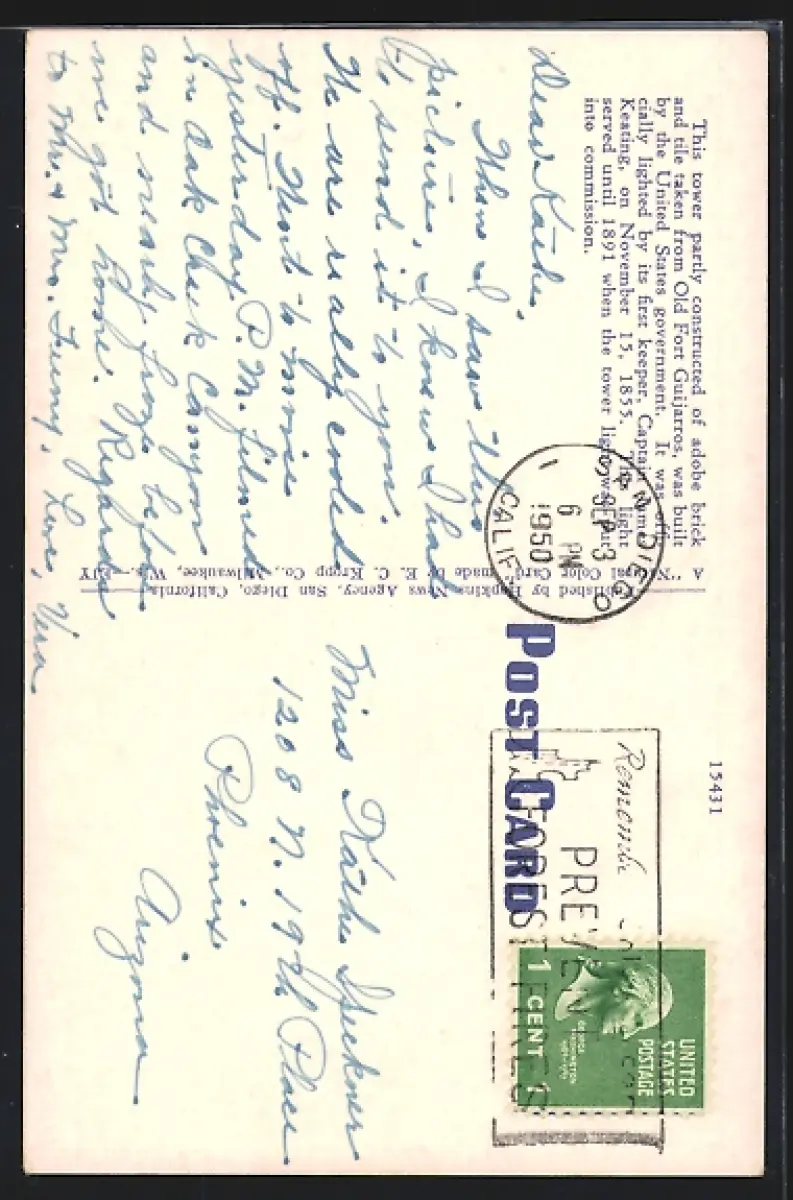 This tower partly constructed of adobe brick
and tile taken from Old Fort Guijarros, was built
by the United States government. It was offi-
cially lighted by its first keeper, Captain James
Keating, on November 15, 1855. This light
served until 1891 when the tower light was put
into commission.
Dear Käthe,
When I saw this
picture, I knew I had
to send it to you.
We are really cooled
off. Went to movie
yesterday P.M. filmed
in Oak Creek Canyon
and nearly froze before
we got home. Regards
to Mr. & Mrs.
Love, Vera
A "Natural Color Card" made by E. C. Kropp Co., Milwaukee, Wis.—EJY
Published by Hopkins News Agency, San Diego, California.
POST CARD
15431
SAN DIEGO
1
SEP 3
6 PM
1950
CALIF.
PREVENT
FOREST FIRES
UNITED
STATES
POSTAGE
GEORGE
WASHINGTON
1789-1797
1 CENT 1
Miss Käthe Speckner
1208 N. 19th Place
Phoenix
Arizona